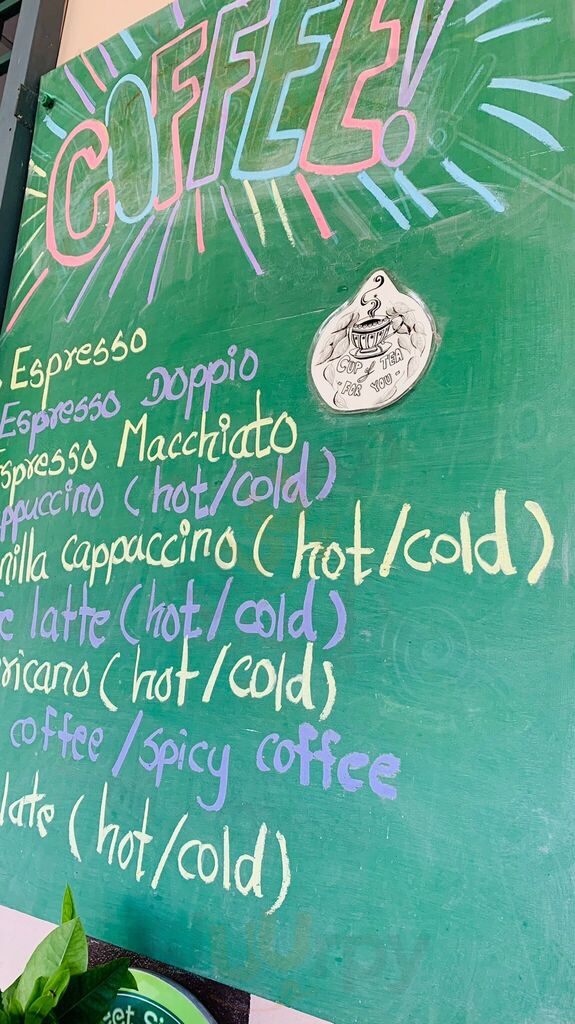 COFFEE!
Espresso
CUP of TEA
- FOR YOU -
Espresso Doppio
Espresso Macchiato
ppuccino (hot/cold)
nilla cappaccino (hot/cold)
latte (hot/cold)
ricano (hot/cold)
coffee/spicy coffee
late (hot/cold)